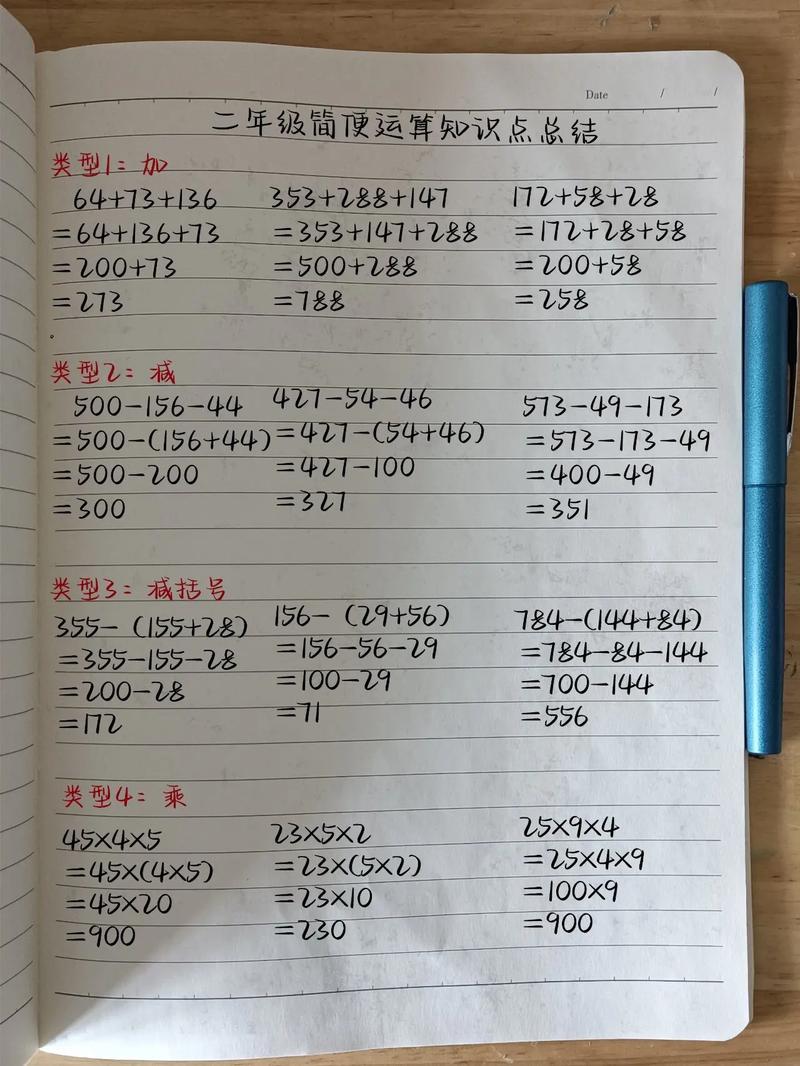 Date / /
二年级简便运算知识点总结
类型1：加
64+73+136 353+288+147 172+58+28
=64+136+73 =353+147+288 =172+28+58
=200+73 =500+288 =200+58
=273 =788 =258
类型2：减
500-156-44 427-54-46 573-49-173
=500-(156+44) =427-(54+46) =573-173-49
=500-200 =427-100 =400-49
=300 =327 =351
类型3：减括号
355-(155+28) 156-(29+56) 784-(144+84)
=355-155-28 =156-56-29 =784-84-144
=200-28 =100-29 =700-144
=172 =71 =556
类型4：乘
45×4×5 23×5×2 25×9×4
=45×(4×5) =23×(5×2) =25×4×9
=45×20 =23×10 =100×9
=900 =230 =900